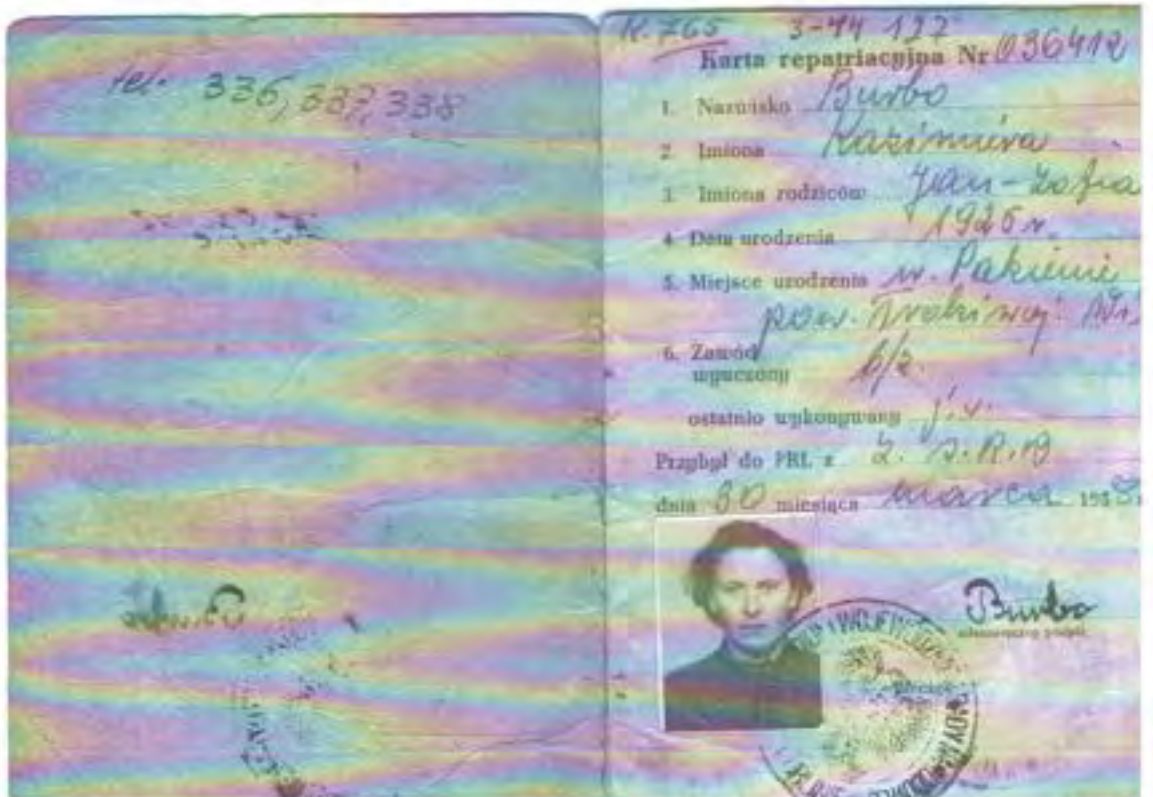 tel. 336, 337, 338
K.765 3-44 127
Karta repatriacyjna Nr 036412
1. Nazwisko Burbo
2. Imiona Kazimiera
3. Imiona rodziców Jan-Zofia
4. Data urodzenia 1925 r.
5. Miejsce urodzenia w.
pow.
6. Zawód
wyuczony b/z.
ostatnio wykonywany j.w.
Przybył do PRL z Z.S.R.R
dnia 30 miesiąca marca 195
Burbo